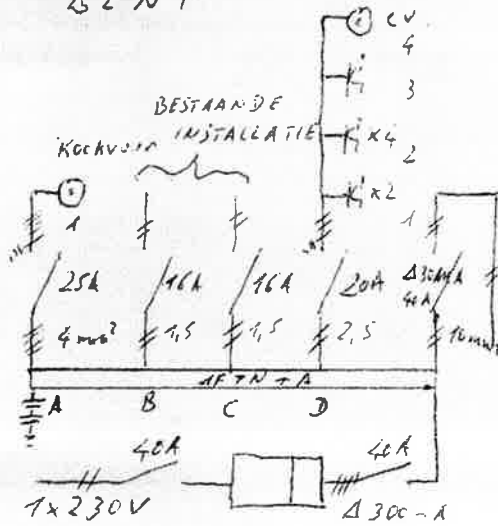 CV
4
3
BESTAANDE
INSTALLATIE
x4
2
x2
1
1
25A
16A
16A
20A
Δ30mA
40A
4 mm²
1,5
1,5
2,5
10mm²
1F+N+A
A
B
C
D
40A
40A
1x230V